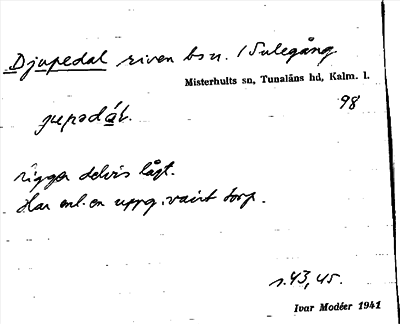 Djupedal riven bsn. i Sulegång
Misterhults sn, Tunaläns hd, Kalm. l.
98
jupədáł.
Ligger delvis lågt.
Har enl. en uppg. varit torp.
s. 43, 45.
Ivar Modéer 1941